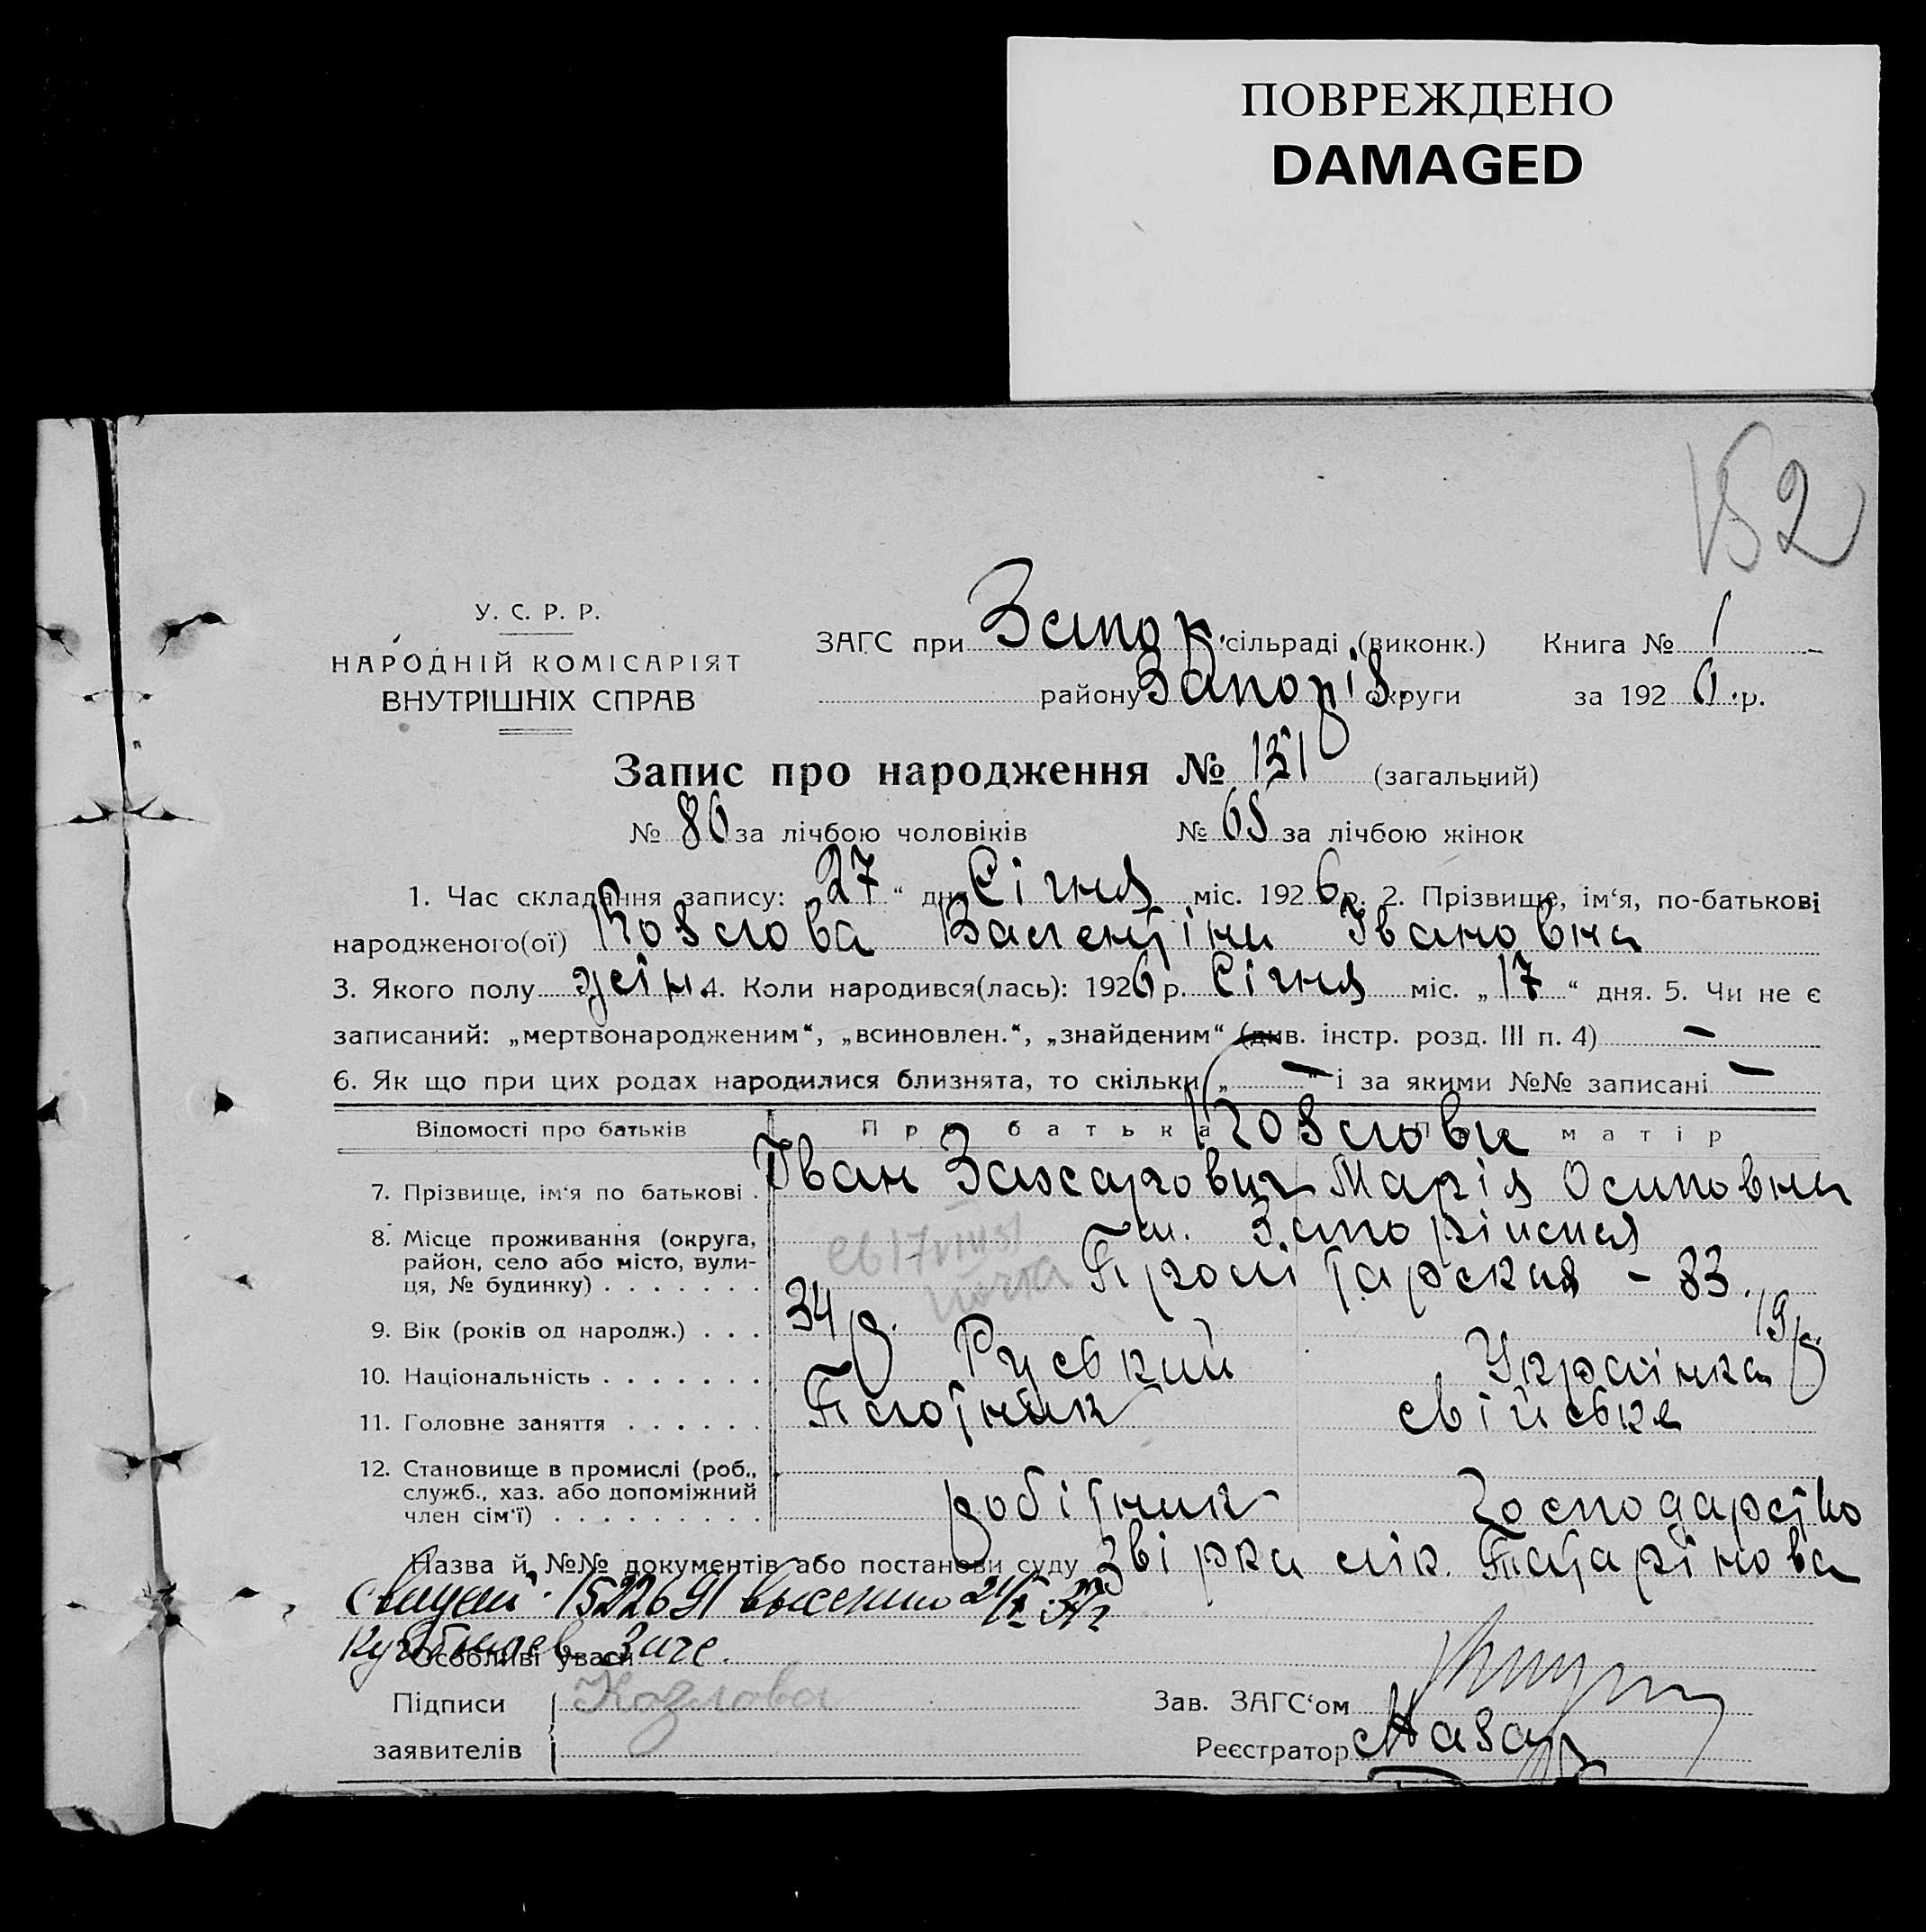 ПОВРЕЖДЕНО
DAMAGED
152
У. С. Р. Р.
НАРОДНІЙ КОМІСАРІЯТ
ВНУТРІШНІХ СПРАВ
ЗАГС при Запор. сільраді (виконк.) Книга № 1
району Запоріз. округи за 1926 р.
Запис про народження № 151 (загальний)
№ 86 за лічбою чоловіків № 65 за лічбою жінок
1. Час складання запису: 27 “ дня Січня міс. 1926 р. 2. Прізвище, ім‘я, по-батькові
народженого(ої) Козлова Валентіна Івановна
3. Якого полу жін. 4. Коли народився(лась): 1926 р. Січня міс. „ 17 “ дня. 5. Чи не є
записаний: „мертвонародженим“, „всиновлен.“, „знайденим“ (див. інстр. розд. III п. 4) –
6. Як що при цих родах народилися близнята, то скільки „ – “ і за якими №№ записані –
Відомості про батьків Про батька Про матір
Козлови
7. Прізвище, ім‘я по батькові . Іван Захарович Марія Осиповна
8. Місце проживання (округа,
район, село або місто, вули-
ця, № будинку) . . . . . . .
Пролітарская - 33.
9. Вік (років од народж.) . . . 34 р. 19 р.
10. Національність . . . . . . . Руський Українка
11. Головне заняття . . . . . . Плотник свійське
12. Становище в промислі (роб.,
служб., хаз. або допоміжний
член сім‘ї) . . . . . . . . . робітник господарство
Назва й №№ документів або постанови суду Звірка лік. Татарінова
1522691
Особливі уваги
Підписи Козлова Зав. ЗАГС‘ом
заявителів Реєстратор Назар